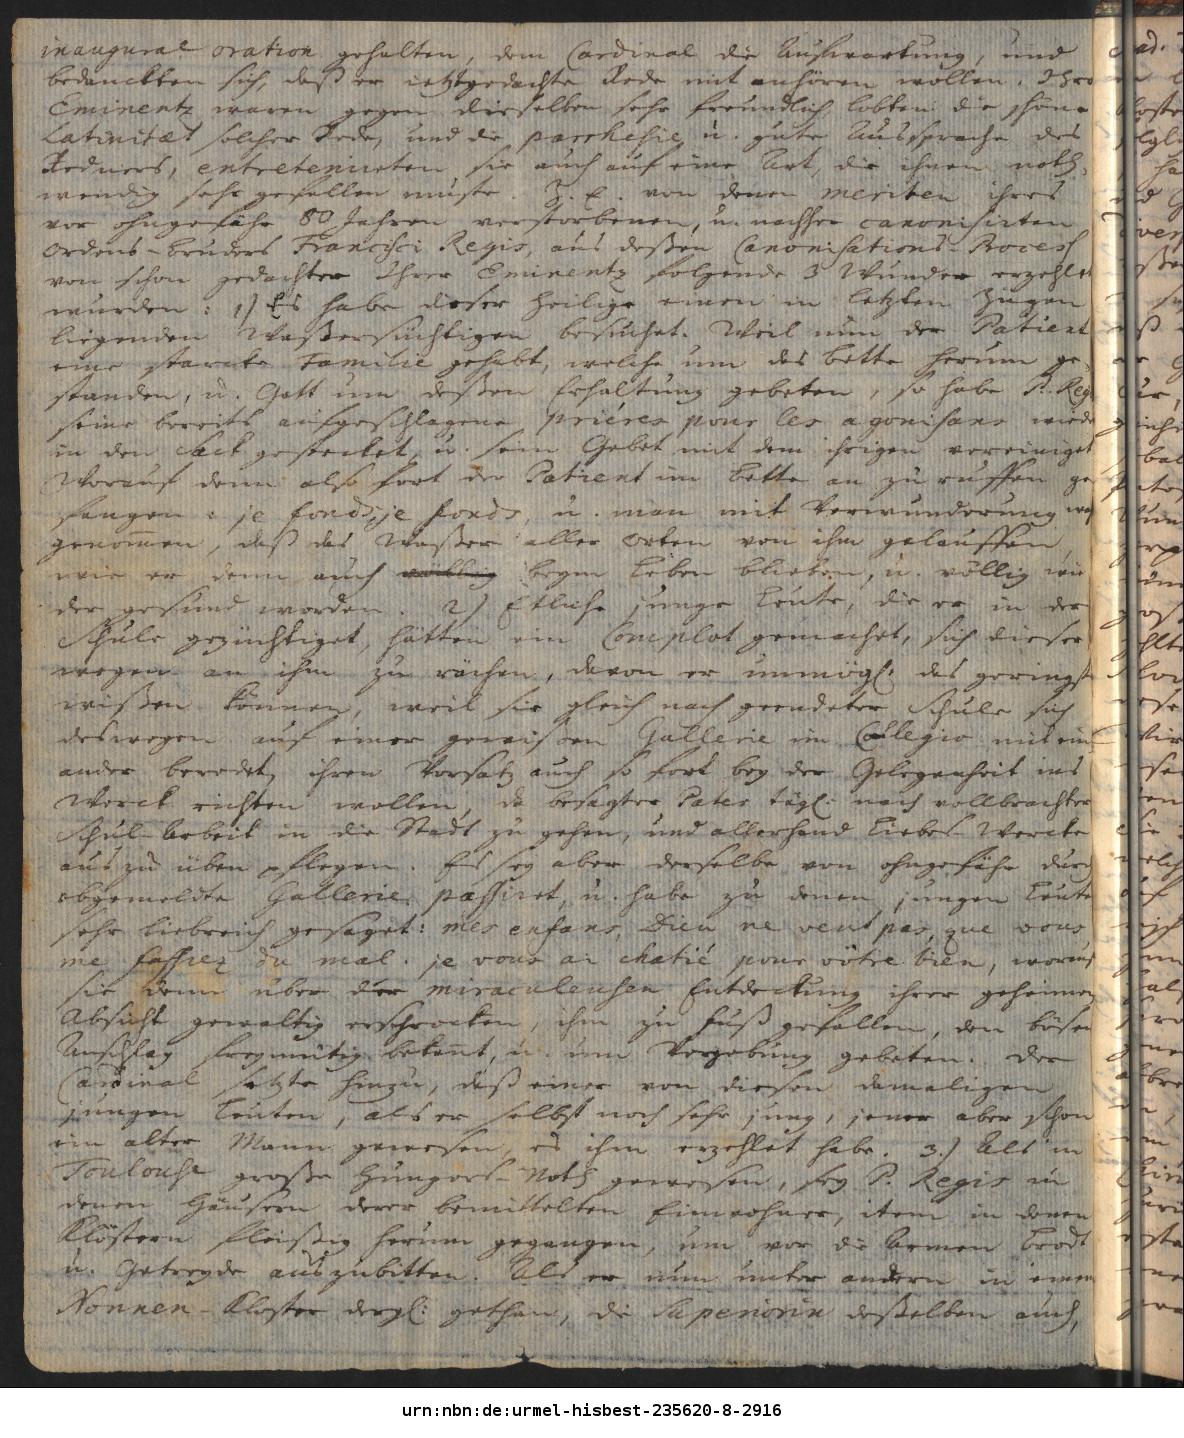 inaugural oration gehalten, dem Cardinal die Aufwartung, und
bedanckten sich, daß er ietztgedachte Rede mit anhören wollen. Ihro
Eminentz waren gegen dieselben sehr freundlich, lobten die schöne
Latinitæt solcher Rede, und die parrhesie, u. gute Aussprache des
Redners, entretenirten sie auch auf eine Art, die ihnen noth-
wendig sehr gefallen muste. Z. E. von denen meriten ihres
vor ohngefähr 80 Jahren verstorbenen, u. nachher canonisirten
Ordens-Bruders Francisci Regis, aus deßen Canonisations-Process
von schon gedachter Ihrer Eminentz folgende 3 Wunder erzehlet
wurden: 1) Es habe dieser Heilige einen in letzten Zügen
liegenden Waßersüchtigen besuchet. Weil nun der Patient
eine starcke Familie gehabt, welche um das Bette herum ge-
standen, u. Gott um deßen Erhaltung gebeten, so habe P. Regis
seine bereits aufgeschlagene prieres pour les agonisans wieder
in den Sack gestecket, u. sein Gebet mit dem ihrigen vereiniget
Worauf denn also fort der Patient im Bette an zu ruffen ge-
fangen: je fonds, je fonds, u. man mit Verwunderung wahr
genommen, daß das Waßer aller Orten von ihm gelauffen,
wie er denn auch völlig beym Leben blieben, u. völlig wie-
der gesund worden. 2) Etliche junge Leute, die er in der
Schule gezüchtiget, hätten ein Complot gemachet, sich dieser-
wegen an ihm zu rächen, davon er unmögl: das geringste
wißen können, weil sie gleich nach geendeter Schule sich
deswegen auf einer gewißen Gallerie im Collegio mit ein-
ander beredet, ihren Vorsatz auch so fort bey der Gelegenheit ins
Werck richten wollen, da besagter Pater tägl: nach vollbrachter
Schul-Arbeit in die Stadt zu gehen, und allerhand Liebes-Wercke
auszu üben pflegen. Es sey aber derselbe von ohngefähr durch
obgemeldte Gallerie passiret, u. habe zu denen jungen Leuten
sehr liebreich gesaget: mes enfans, Dieu ne veut pas, que vous
me fassiez du mal. je vous ai chatié pour vôtre bien, worauf
sie denn über der miraculeusen Entdeckung ihrer geheimen
Absicht gewaltig erschrocken, ihm zu Fuß gefallen, den bösen
Anschlag freymütig bekennt, u. um Vergebung gebeten. Der
Cardinal setzte hinzu, daß einer von diesen damaligen
jungen Leuten, als er selbst noch sehr jung, jener aber schon
ein alter Mann gewesen, es ihm erzehlet habe. 3.) Als in
Toulouse große Hungers-Noth gewesen, sey P. Regis in
denen Häusern derer bemittelten Einwohner, item in denen
Klöstern fleißig herum gegangen, um vor die Armen Brodt
u. Getreyde auszubitten. Als er nun unter andern in einem
Nonnen-Kloster dergl: gethan, die Superiorin deßelben auch,
urn:nbn:de:urmel-hisbest-235620-8-2916